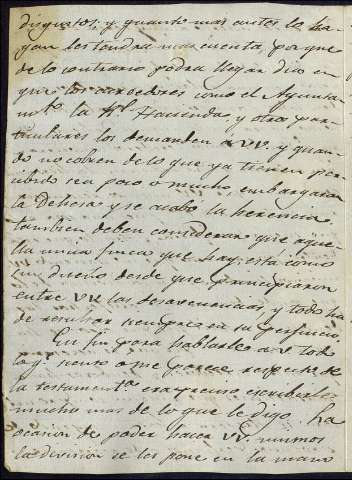 disgustos; y quanto mas antes lo ha-
gan les tendra mas cuenta, porque
de lo contrario podra llegar dia en
que los acrehedores como el Ayunta-
mto. la Rl. Hacienda, y otros par-
ticulares los demanden a VV. y quan-
do no cobren de lo que ya tienen per-
cibido sea poco o mucho, embargaran
la Dehesa y se acabó la herencia
tambien deben considerar que aque-
lla unica finca que hay, está como
sin dueño desde que principiaron
entre VV. las desavenencias, y todo ha
de resultar siempre en su perjuicio
En fin para hablarle a V. todo
lo que siento o me parece respecto de
la testamenta. era preciso escribirle
mucho mas de lo que le digo. La
ocasion de poder hacer VV. mismos
la division se les pone en la mano